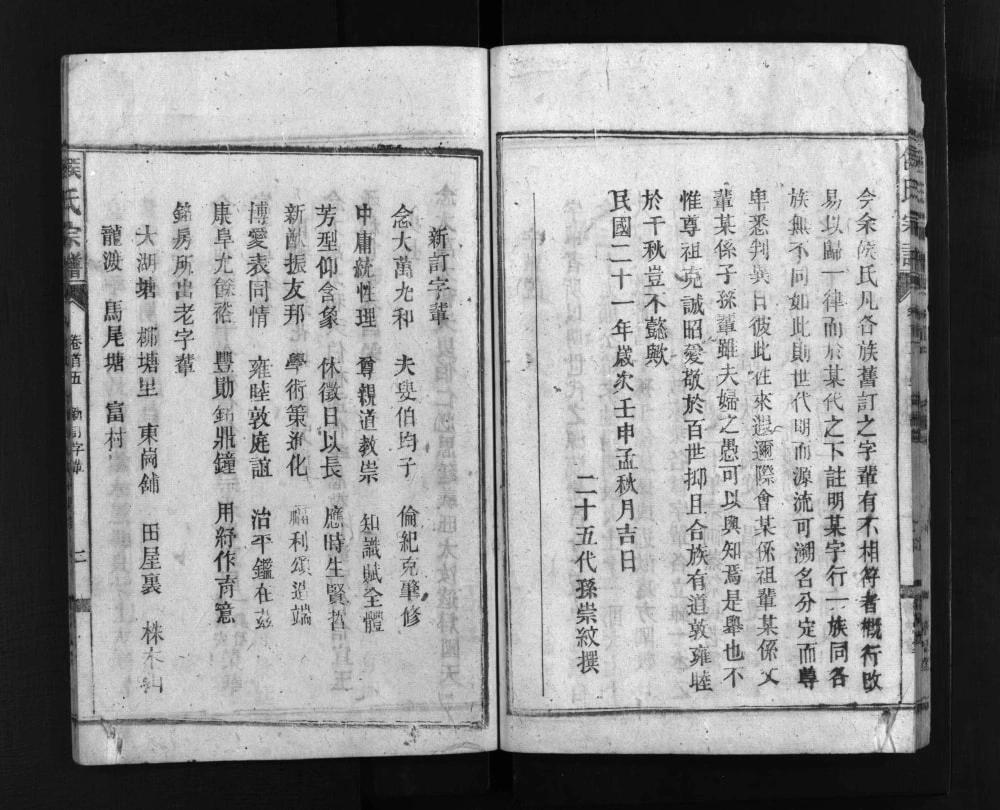 今余侯氏凡各族舊訂之字輩有不相符者概行改
易以歸一律而於某代之下註明某字行一族同各
族無不同如此則世代明而源流可溯名分定而尊
卑悉判異日彼此往來遐邇際會某係祖輩某係父
輩某係子孫輩雖夫婦之愚可以與知焉是舉也不
惟尊祖克誠昭愛敬於百世抑且合族有道敦雍睦
於千秋豈不懿歟
民國二十一年歲次壬申孟秋月吉日
二十五代孫崇紋撰
侯氏宗譜
新訂字輩
念大萬允和 夫叟伯均子 倫紀克肇修
中庸統性理 尊親道教崇 知識賦全體
芳型仰含象 休徵日以長 應時生賢哲
新猷振友邦 學術策進化 福利頌造端
博愛表同情 雍睦敦庭誼 治平鑑在茲
康阜尤餘裕 豐勛銘鼎鐘 用紓作育意
銘房所出老字輩
大湖塘 楊塘里 東崗舖 田屋裏 株木山
龍渡 馬尾塘 富村
侯氏宗譜 卷首五 新訂字輩 二